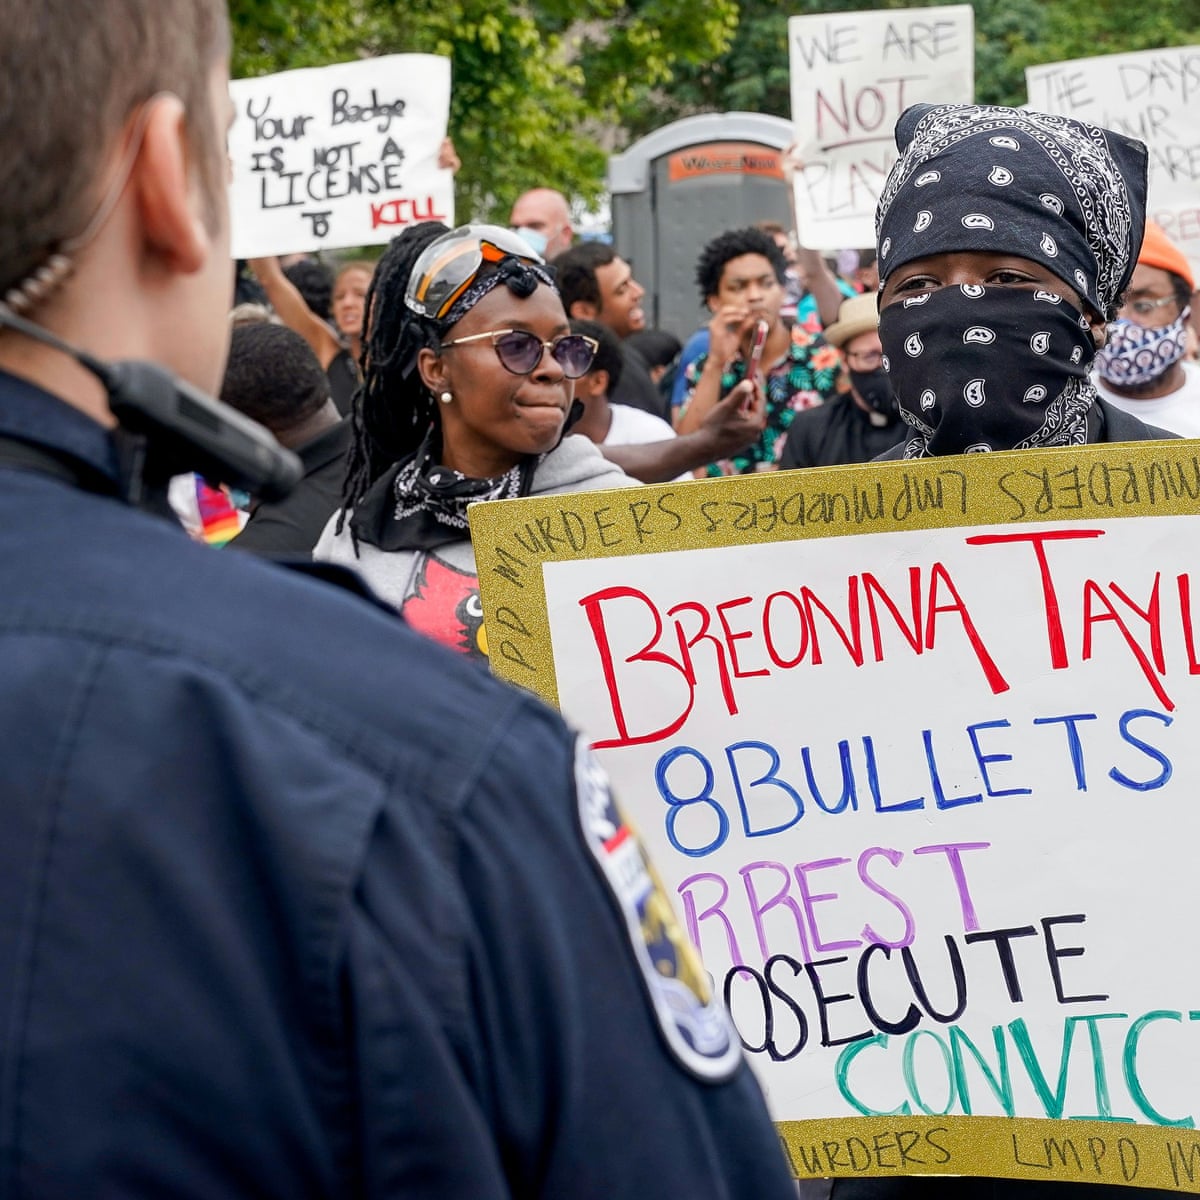 Your Badge
IS NOT A
LICENSE
TO KILL
WE ARE
NOT
PLAY
THE DAYS
MURDERS LMPD MURDERS MURDERS
PD MURDERS
BREONNA TAYL
8 BULLETS
RREST
OSECUTE
CONVIC
MURDERS LMPD M